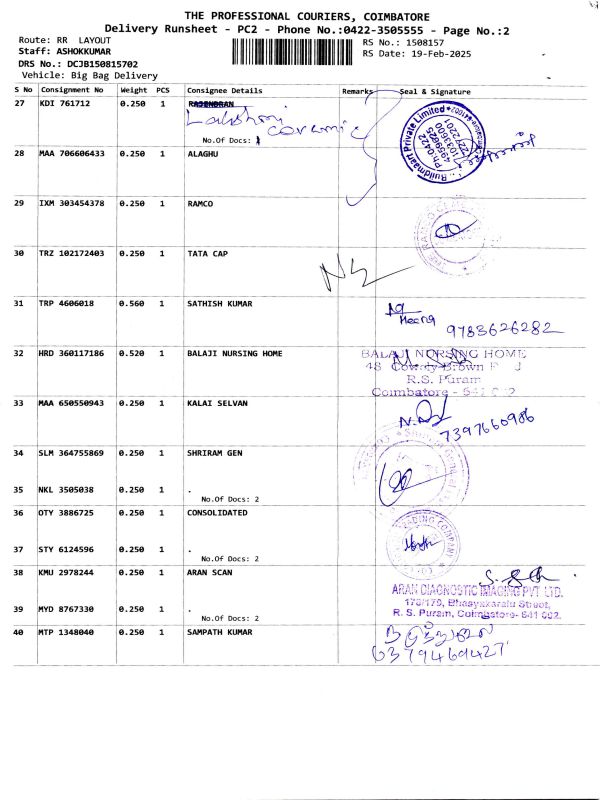 THE PROFESSIONAL COURIERS, COIMBATORE
Delivery Runsheet - PC2 - Phone No.:0422-3505555 - Page No.:2
Route: RR LAYOUT
RS No.: 1508157
Staff: ASHOKKUMAR
RS Date: 19-Feb-2025
DRS No.: DCJB150815702
Vehicle: Big Bag Delivery
S No Consignment No Weight PCS Consignee Details Remarks Seal & Signature
27 KDI 761712 0.250 1 RAJENDRAN
Lakshmi
ceramic
No.Of Docs: 1
Buildmaart Private Limited
Ph:0422
4959925
28 MAA 706606433 0.250 1 ALAGHU
29 IXM 303454378 0.250 1 RAMCO
30 TRZ 102172403 0.250 1 TATA CAP
31 TRP 4606018 0.560 1 SATHISH KUMAR
Meena
9783626282
32 HRD 360117186 0.520 1 BALAJI NURSING HOME
BALAJI NURSING HOME
48 Cowdy Brown
R.S. Puram
Coimbatore - 641 002
33 MAA 650550943 0.250 1 KALAI SELVAN
7397660986
34 SLM 364755869 0.250 1 SHRIRAM GEN
35 NKL 3505038 0.250 1 .
No.Of Docs: 2
36 OTY 3886725 0.250 1 CONSOLIDATED
TRADING COMPANY
37 STY 6124596 0.250 1 .
No.Of Docs: 2
38 KMU 2978244 0.250 1 ARAN SCAN
ARAN DIAGNOSTIC IMAGING PVT. LTD.
178/179, Bhasyakaralu Street,
R. S. Puram, Coimbatore- 641 002.
39 MYD 8767330 0.250 1 .
No.Of Docs: 2
40 MTP 1348040 0.250 1 SAMPATH KUMAR
6379469427